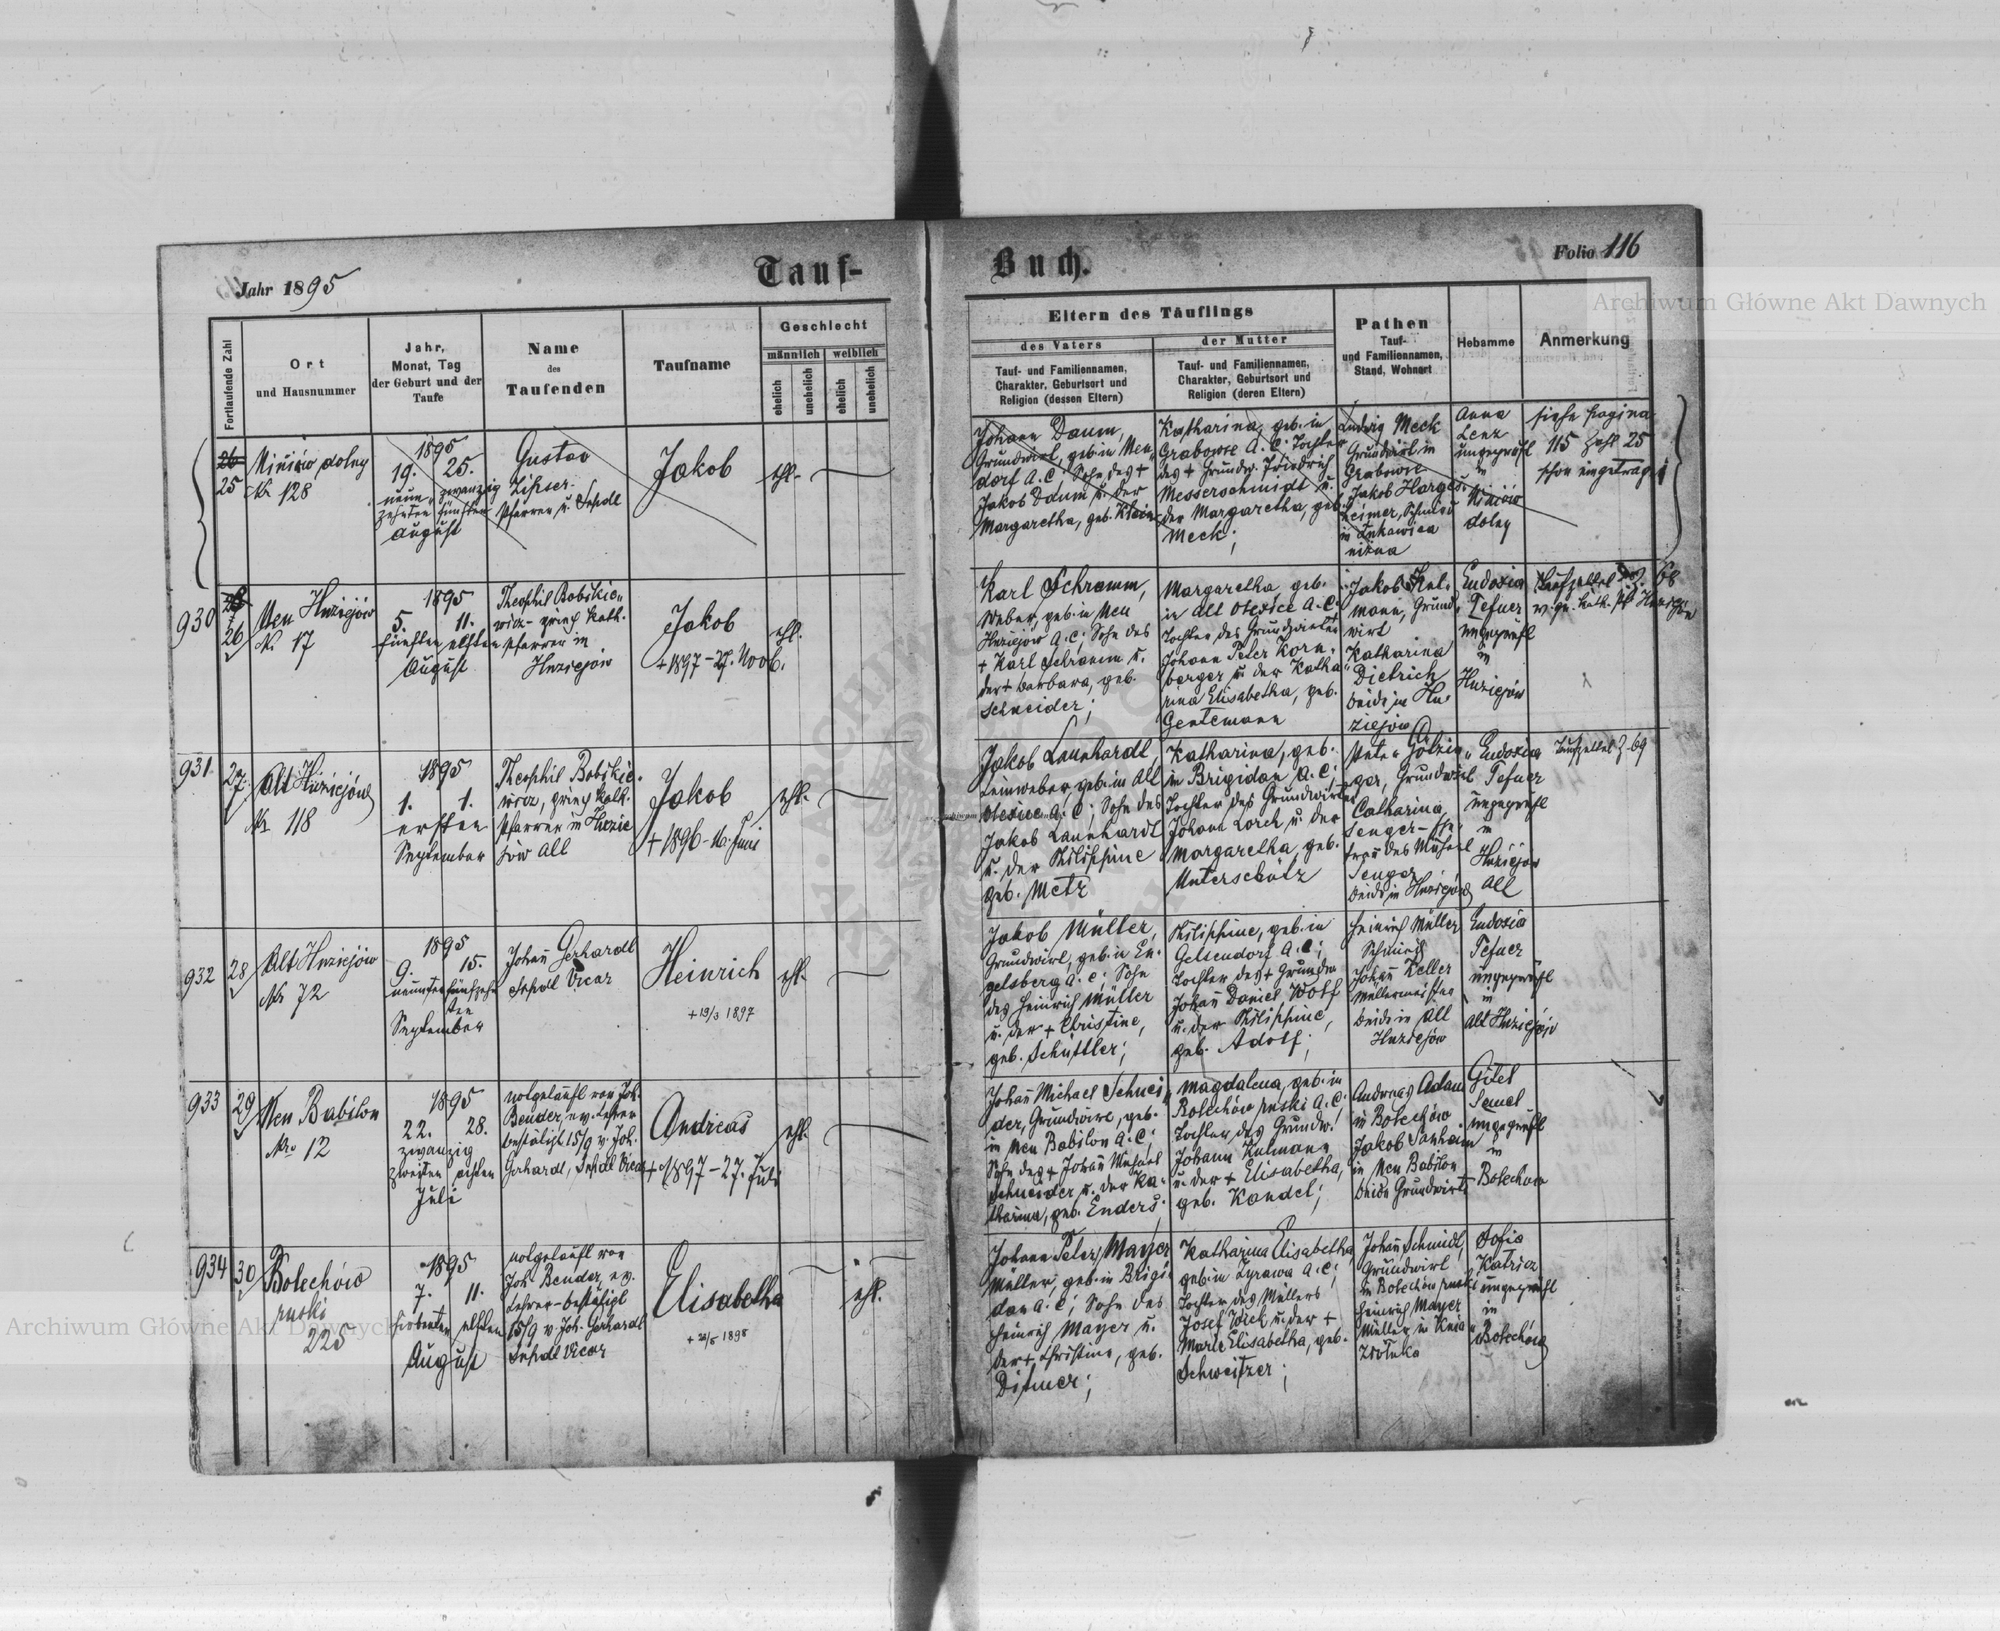 Jahr 1895
Tauf-
Buch.
Folio 116
Archiwum Główne Akt Dawnych
Fortlaufende Zahl
Ort
und Hausnummer
Jahr,
Monat, Tag
der Geburt und der
Taufe
Name
des
Taufenden
Taufname
Geschlecht
männlich
weiblich
ehelich
unehelich
ehelich
unehelich
Eltern des Täuflings
des Vaters
Tauf- und Familiennamen,
Charakter, Geburtsort und
Religion (dessen Eltern)
der Mutter
Tauf- und Familiennamen,
Charakter, Geburtsort und
Religion (deren Eltern)
Pathen
Tauf-
und Familiennamen,
Stand, Wohnort
Hebamme
Anmerkung
26
25
dolny
Nr 128
1895
19. 25.
neun- zwanzig
zehnten fünften
August
Gustav
Lipser
Pfarrer u.
Jakob
ehl.
Johann Daum,
Grundwirt, geb. in Neu
dorf A.C; Sohn des +
Jakob Daum u. der
Margaretha, geb. Klein
Katharina, geb. in
Grabowce A.C; Tochter
des + Grundw. Friedrich
Messerschmidt u.
der Margaretha, geb.
Meck;
Ludwig Meck
Grundwirt in
Grabowce
Jakob Harges-
heimer, Schmied
in Łukawica
niżna
Anna
Lenz
ungeprüft
in
dolny
siehe pagina
115 Zahl 25
schon eingetragen
930
26
Neu Hoziejów
Nr. 17
1895
5. 11.
fünften elften
August
Theophil Bobikie-
wicz - griech kath.
Pfarrer in
Hoziejów
Jakob
+ 1897 - 27. Novb.
ehl.
Karl Schramm,
Weber, geb. in Neu
Hoziejów A.C; Sohn des
+ Karl Schramm u.
der + Barbara, geb.
Schneider;
Margaretha, geb.
in Alt Oleksice A.C;
Tochter des Grundwirten
Johann Peter Korn-
berger u. der Katha-
rina Elisabetha, geb.
Gentemann
Jakob Kul-
mann, Grund-
wirt
Katharina
Dietrich
beide in Hu-
ziejów
Eudoxia
Tefner
ungeprüft
in
Huziejów
Taufzettel Z. 68
931
27
Alt Huziejów
Nr 118
1895
1. 1.
ersten
September
Theophil Bobikie-
wicz, griech kath.
Pfarrer in Huzie
jów Alt
Jakob
+ 1896 - 16. Juni
ehl.
Jakob Launhardt,
Leinweber, geb. in Alt
Olexice A.C; Sohn des
Jakob Launhardt
u. der Philippine
geb. Metz
Katharina, geb.
in Brigidau A.C;
Tochter des Grundwirten
Johann Lorch u. der
Margaretha, geb.
Unterschütz
Peter Götzin-
ger, Grundwirt
Catharina
Senger - Ehe-
frau des Michael
Senger
beide in Huziejów
Eudoxia
Tefner
ungeprüft
in
Huziejów
Alt
Taufzettel Z. 69
932
28
Alt Huziejów
Nr 72
1895
9. 15.
neunten fünfzehn
ten
September
Johann Gerhardt
Vicar
Heinrich
+ 19/3 1897
ehl.
Jakob Müller,
Grundwirt, geb. in En-
gelsberg A.C; Sohn
des Heinrich Müller
u. der + Christine,
geb. Schüttler;
Philippine, geb. in
Gelsendorf A.C;
Tochter des + Grundw.
Johann Daniel Wolf
u. der Philippine,
geb. Adolf;
Heinrich Müller
Schmied
Johann Keller
Müllermeister
beide in Alt
Huziejów
Eudoxia
Tefner
ungeprüft
in
Alt Huziejów
933
29
Neu Babilon
Nro 12
1895
22. 28.
zwanzig
zweiten achten
Juli
notgetauft von Joh.
Bender, ev. Lehrer
bestätigt 15/9 v. Joh.
Gerhardt, Vicar
Andreas
+ 1897 - 27. Juli
ehl.
Johann Michael Schnei-
der, Grundwirt, geb.
in Neu Babilon A.C;
Sohn des + Johann Michael
Schneider u. der Ka-
tharina, geb. Enders;
Magdalena, geb. in
Bolechów ruski A.C;
Tochter des Grundw.
Johann Kulmann
u. der + Elisabetha,
geb. Kandel;
Andreas Adam
in Bolechów
Jakob Manheim
in Neu Babilon
beide Grundwirte
Gitel
Semel
ungeprüft
in
Bolechów
934
30
Bolechów
ruski
225
1895
7. 11.
siebenten elften
August
notgetauft von
Joh. Bender, ev.
Lehrer - bestätigt
15/9 v. Joh. Gerhardt
Vicar
Elisabetha
+ 28/5 1898
ehl.
Johann Peter Mayer
Müller, geb. in Brigi-
dau A.C; Sohn des
Heinrich Mayer u.
der + Christine, geb.
Ditmer;
Katharina Elisabetha,
geb. in Zyrawa A.C;
Tochter des Müllers
Josef Wick u. der +
Marie Elisabetha, geb.
Schweitzer;
Johann Schmidt,
Grundwirt
in Bolechów ruski
Heinrich Mayer
Müller in Knia-
złoluka
Sofia
Katricz
ungeprüft
in
Bolechów
Archiwum Główne Akt Dawnych